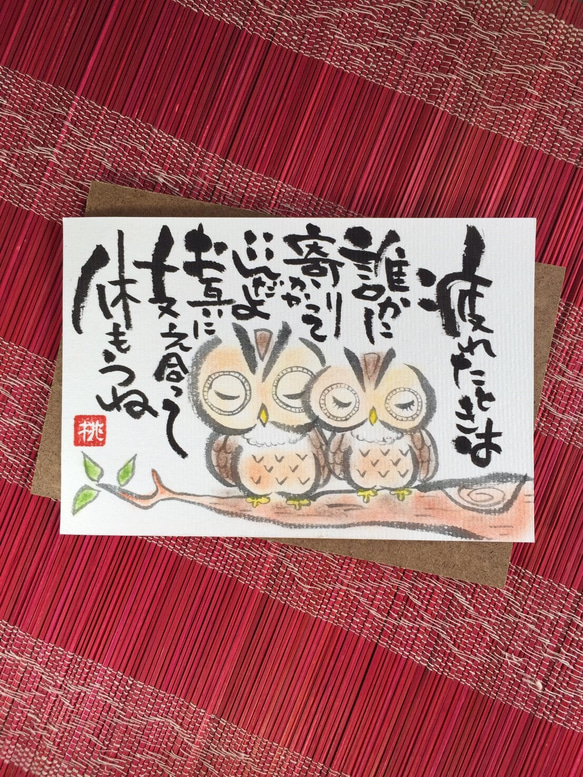 疲れたときは
誰かに
寄りかかって
いいんだよ
お互いに
支え合って
休もうね
桃